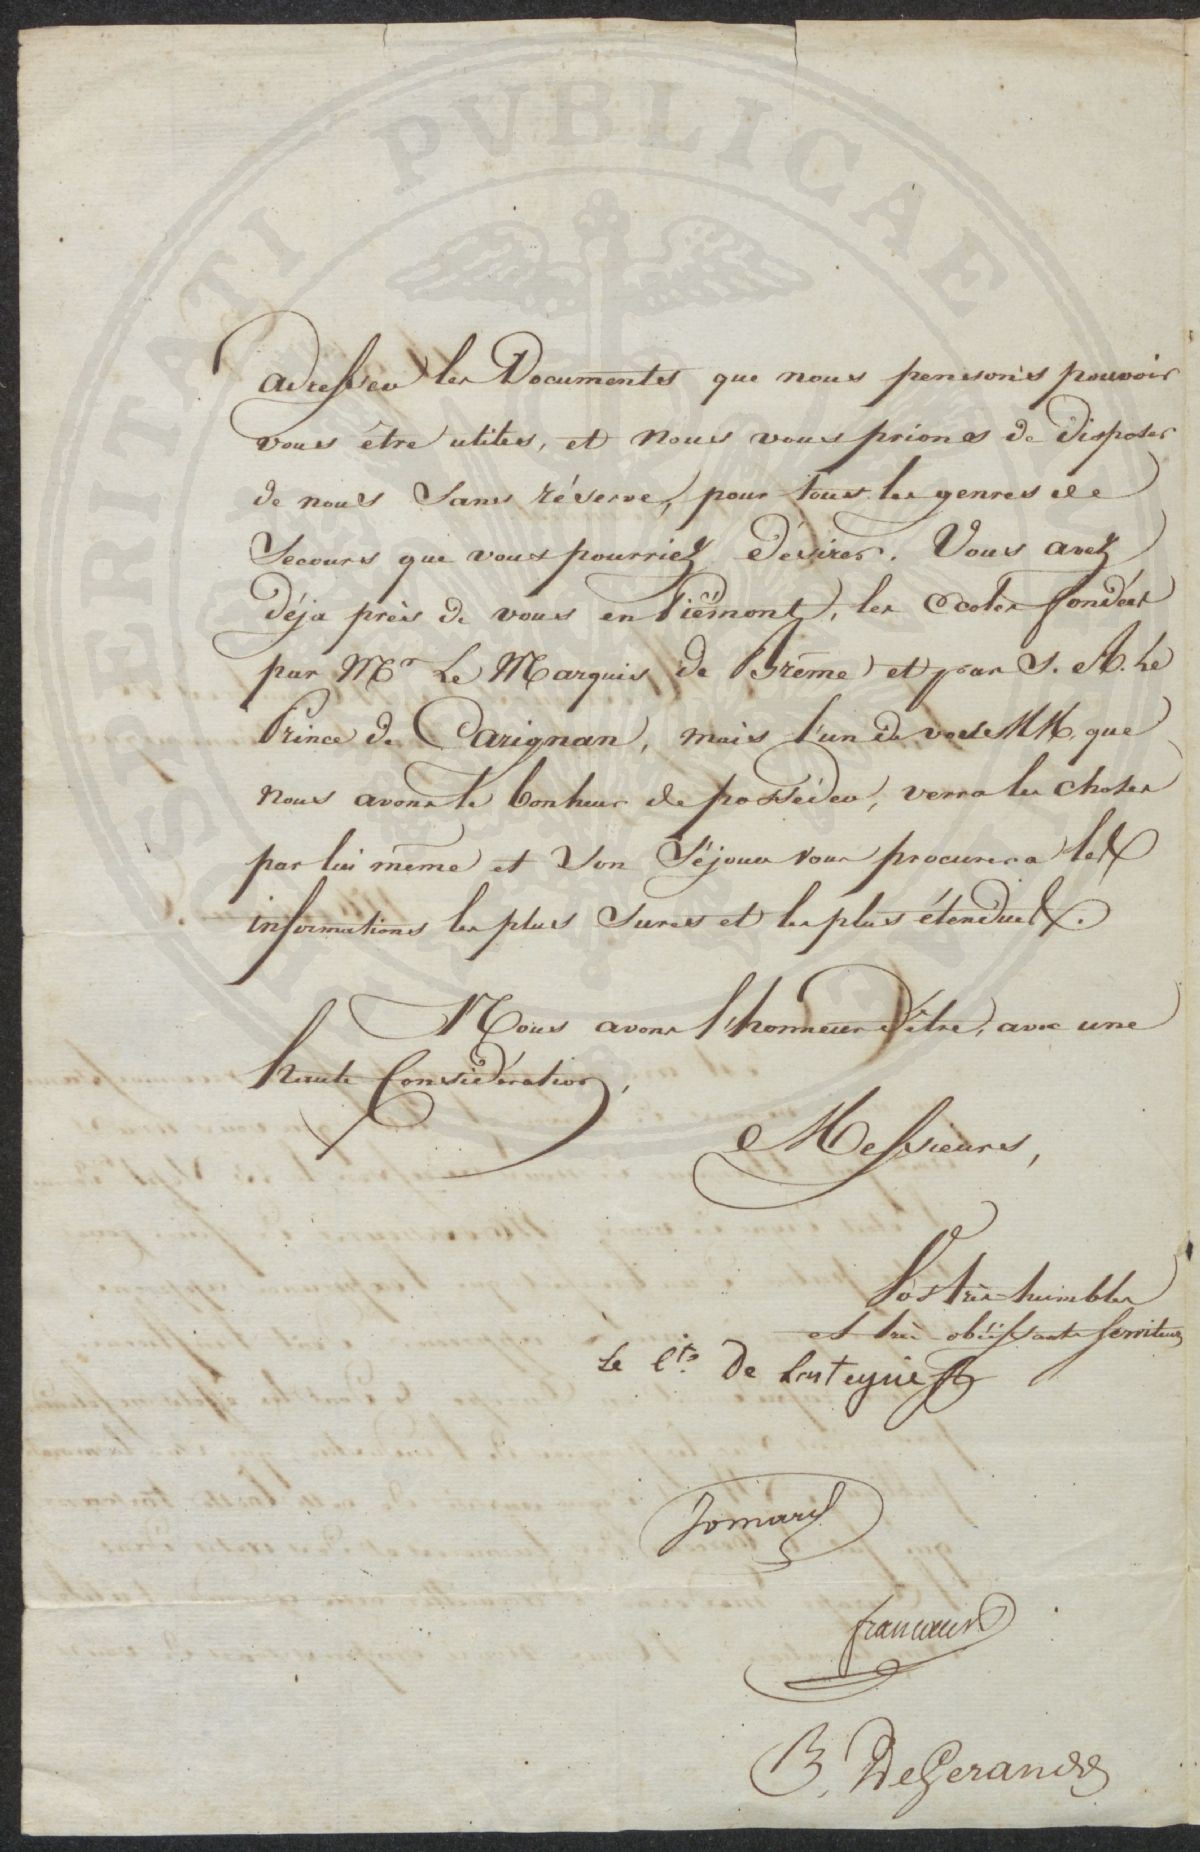 PROSPERITATI PVBLICAE
adresser les Documents que nous pensons pouvoir
vous être utiles, et nous vous prions de disposer
de nous sans réserve, pour tous les genres de
Secours que vous pourriez désirer. Vous avez
déja près de vous en Piémont, les Ecoles fondées
par Mr Le Marquis de Brême et par S. A. Le
Prince de Carignan, mais l'un de vous MM. que
nous avons le bonheur de posséder, verra les choses
par lui même et son Séjour vous procurera les
informations les plus Sures et les plus étendues.
Nous avons l'honneur d'être, avec une
haute Considération,
Messieurs,
Vos très-humbles
et très-obéissants Serviteurs
Le Cte. De Lasteyrie
Jomard
francoeur
B. DeGerando